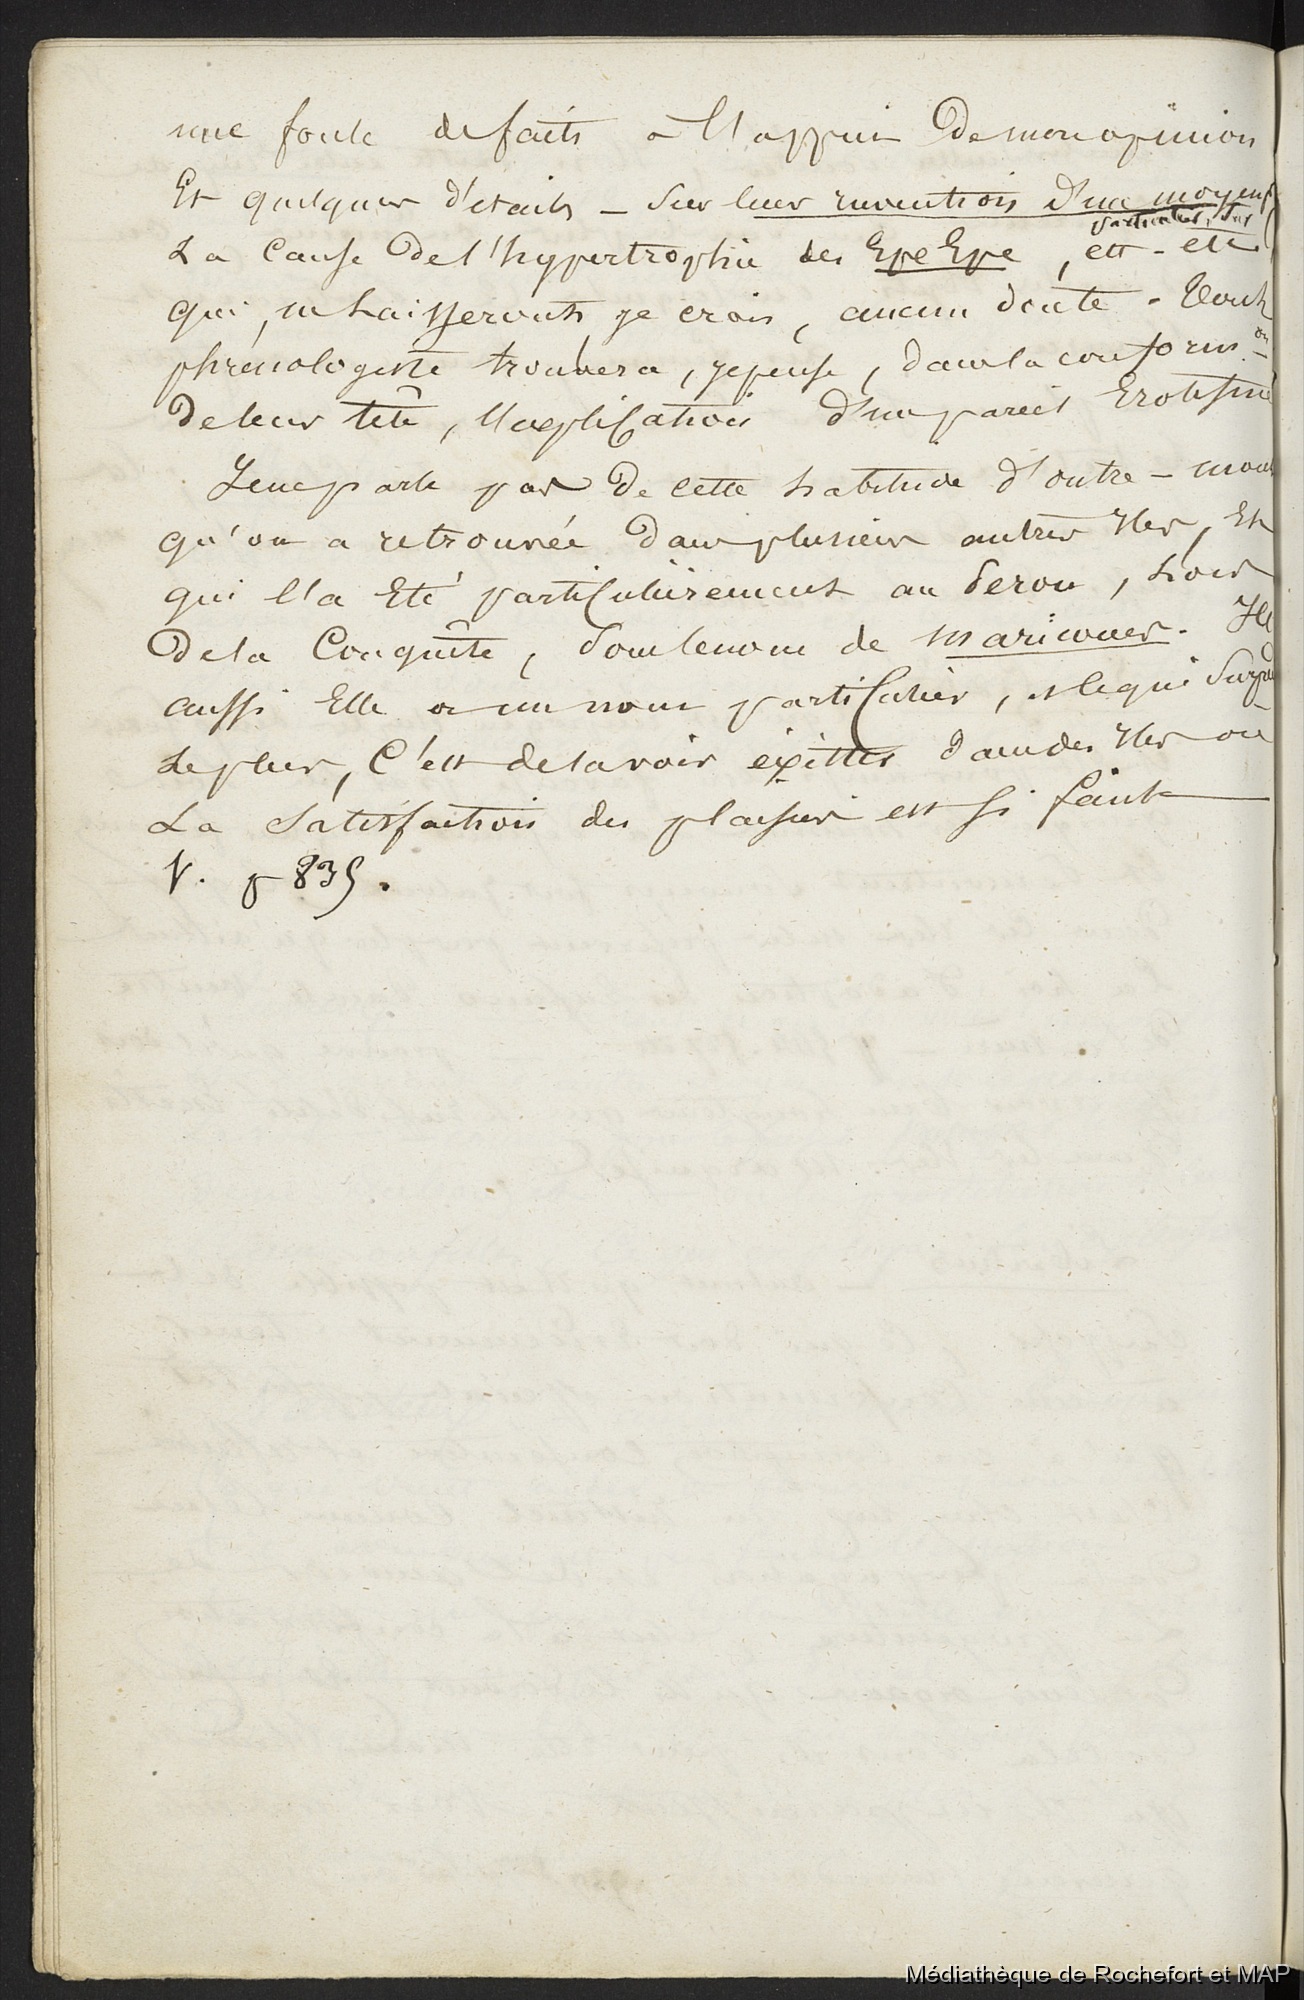 une foule de faits à l'appui de mon opinion
Et quelques détails – sur leur invention d'un moyen
particulier, sur
La Cause de l'hypertrophie des Epe Epe, ett – ett
qui, ne Laisseront, je crois, aucun doute – tout
phrénologiste trouvera, je pense, dans la conform.on
De leur tête, l'explication d'un pareil Erotisme
Je ne parle pas De cette habitude d'outre – mon
qu'on a retrouvée Dans plusieurs autres Iles, Et
qui l'a Eté particulièrement au Perou, Lors
De la Conquête, sous le nom de maricones. Ici
aussi Elle a un nom particulier, et ce qui surp
Le plus, C'est de la voir exister dans des Iles ou
La satisfaction des plaisirs est si facile
V. p 835.
Médiathèque de Rochefort et MAP